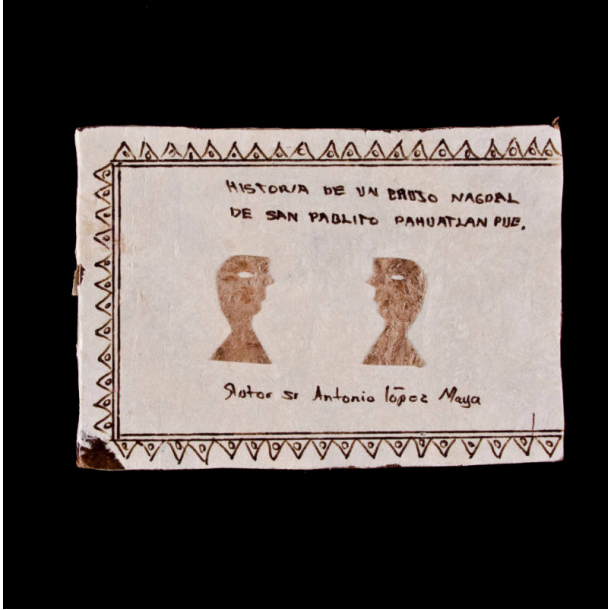 HISTORIA DE UN BRUJO NAGUAL
DE SAN PABLITO PAHUATLAN PUE.
Autor sr Antonio lópez Maya